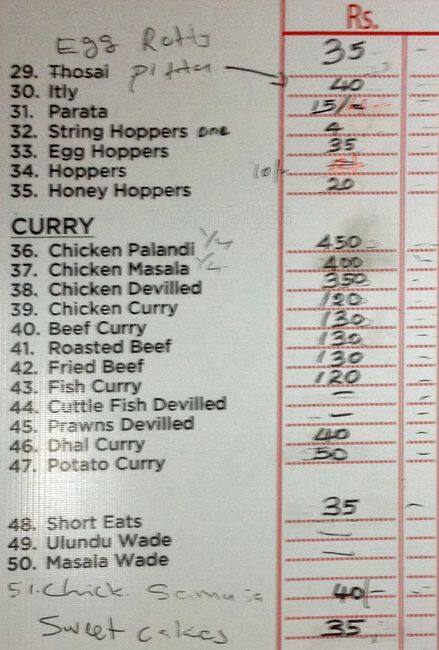 Rs.
Egg Rotty 35 -
29. Thosai pittu
30. Itly 40
31. Parata 15/-
32. String Hoppers one 4
33. Egg Hoppers 35
34. Hoppers 10/-
35. Honey Hoppers 20
CURRY
36. Chicken Palandi 1/4 450 -
37. Chicken Masala 1/4 400 -
38. Chicken Devilled 350 -
39. Chicken Curry 120 -
40. Beef Curry 130 -
41. Roasted Beef 130 -
42. Fried Beef 130 -
43. Fish Curry 120 -
44. Cuttle Fish Devilled -
45. Prawns Devilled -
46. Dhal Curry 40 -
47. Potato Curry 50 -
48. Short Eats 35 -
49. Ulundu Wade -
50. Masala Wade -
51. Chick. Samusa 40/- -
Sweet cakes 35 -